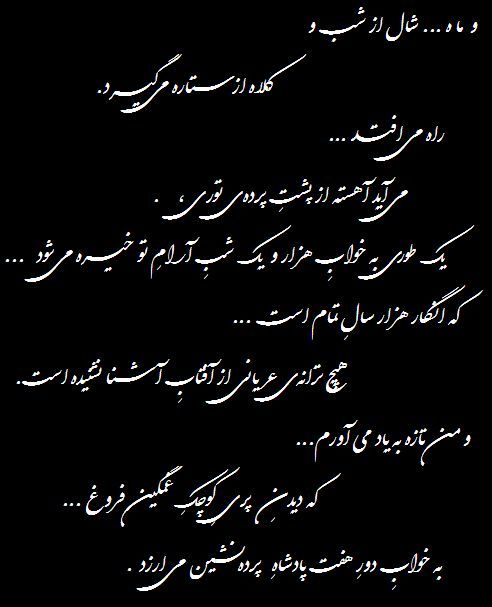 و ماه ... شال از شب و
کلاه از ستاره می‌گیرد.
راه می‌افتد ...
می‌آید آهسته از پشتِ پرده‌ی توری ، .
یک طوری به خوابِ هزار و یک شبِ آرامِ تو خیره می‌شود ...
که انگار هزار سالِ تمام است ...
هیچ ترانه‌ی عریانی از آفتابِ آشنا نشنیده است.
و من تازه به یاد می‌آورم...
که دیدنِ پریِ کوچکِ غمگینِ فروغ ...
به خوابِ دورِ هفت پادشاهِ پرده‌نشین می‌ارزد .